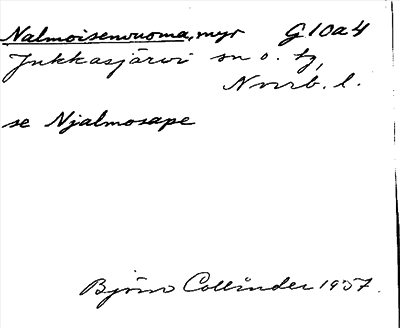 Nalmoisenvuoma, myr G10a4
Jukkasjärvi sn o. tg,
Norrb. l.
se Njalmosape
Björn Collinder 1937.